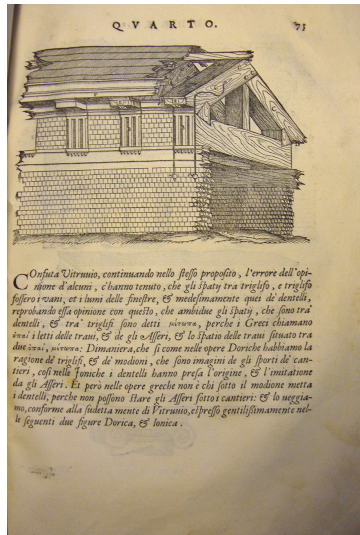 QVARTO. 73
COnfuta Vitruuio, continuando nello stesso proposito, l'errore dell'opi-
nione d'alcuni, c'hanno tenuto, che gli spatij tra triglifo, e triglifo
fossero i vani, et i lumi delle finestre, & medesimamente quei de' dentelli,
reprobando essa opinion con questo, che ambidue gli spatij, che sono tra'
dentelli, & tra' triglifi sono detti μέτωπα, perche i Greci chiamano
ὀπαὶ i letti delle traui, & de gli Asseri, & lo spatio delle traui situato tra
due ὀπαὶ, μέτωπα: Dimaniera, che si come nelle opere Doriche habbiamo la
ragione de' triglifi, & de' modioni, che sono imagini de gli sporti de' can-
tieri, così nelle Ioniche i dentelli hanno presa l'origine, & l'imitatione
da gli Asseri. Et però nelle opere greche non è chi sotto il modione metta
i dentelli, perche non possono stare gli Asseri sotto i cantieri: & lo ueggia-
mo, conforme alla sudetta mente di Vitruuio, espresso gentilissimamente nel-
le seguenti due figure Dorica, & Ionica.